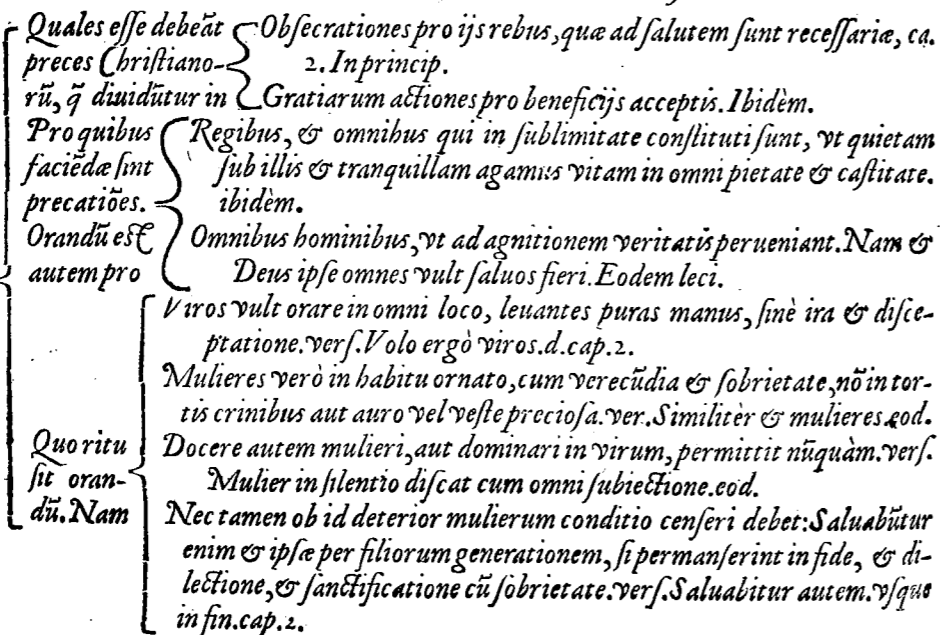 Quales eſſe debeāt
preces Chriſtiano-
rū, q̄ diuidūtur in
Obſecrationes pro ijs rebus, quæ ad ſalutem ſunt receſſariæ, ca.
2. In princip.
Gratiarum actiones pro beneficijs acceptis. Ibidèm.
Pro quibus
faciēdæ ſint
precatiōes.
Orandū eſt
autem pro
Regibus, & omnibus qui in ſublimitate conſtituti ſunt, vt quietam
ſub illis & tranquillam agamus vitam in omni pietate & caſtitate.
ibidèm.
Omnibus hominibus, vt ad agnitionem veritatis perueniant. Nam &
Deus ipſe omnes vult ſaluos fieri. Eodem leci.
Quo ritu
ſit oran-
dū. Nam
Viros vult orare in omni loco, leuantes puras manus, ſinè ira & diſce-
ptatione. verſ. Volo ergò viros. d. cap. 2.
Mulieres verò in habitu ornato, cum verecūdia & ſobrietate, nō in tor-
tis crinibus aut auro vel veſte precioſa. ver. Similitèr & mulieres. eod.
Docere autem mulieri, aut dominari in virum, permittit nūquàm. verſ.
Mulier in ſilentio diſcat cum omni ſubiectione. eod.
Nec tamen ob id deterior mulierum conditio cenſeri debet: Saluabūtur
enim & ipſæ per filiorum generationem, ſi permanſerint in fide, & di-
lectione, & ſanctificatione cū ſobrietate. verſ. Saluabitur autem. vſque
in fin. cap. 2.